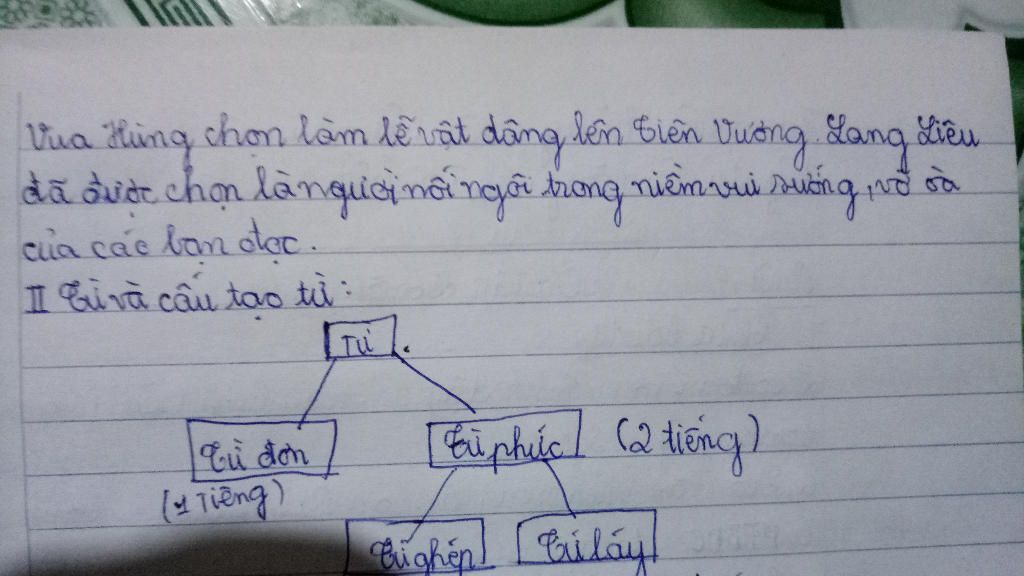 Vua Hùng chọn làm lễ vật dâng lên Tiên Vương. Lang Liêu
đã được chọn là người nối ngôi trong niềm vui sướng, vỡ oà
của các bạn đọc.
II Từ và cấu tạo từ:
Từ
Từ đơn Từ phức (2 tiếng)
(1 Tiếng)
Từ ghép Từ láy